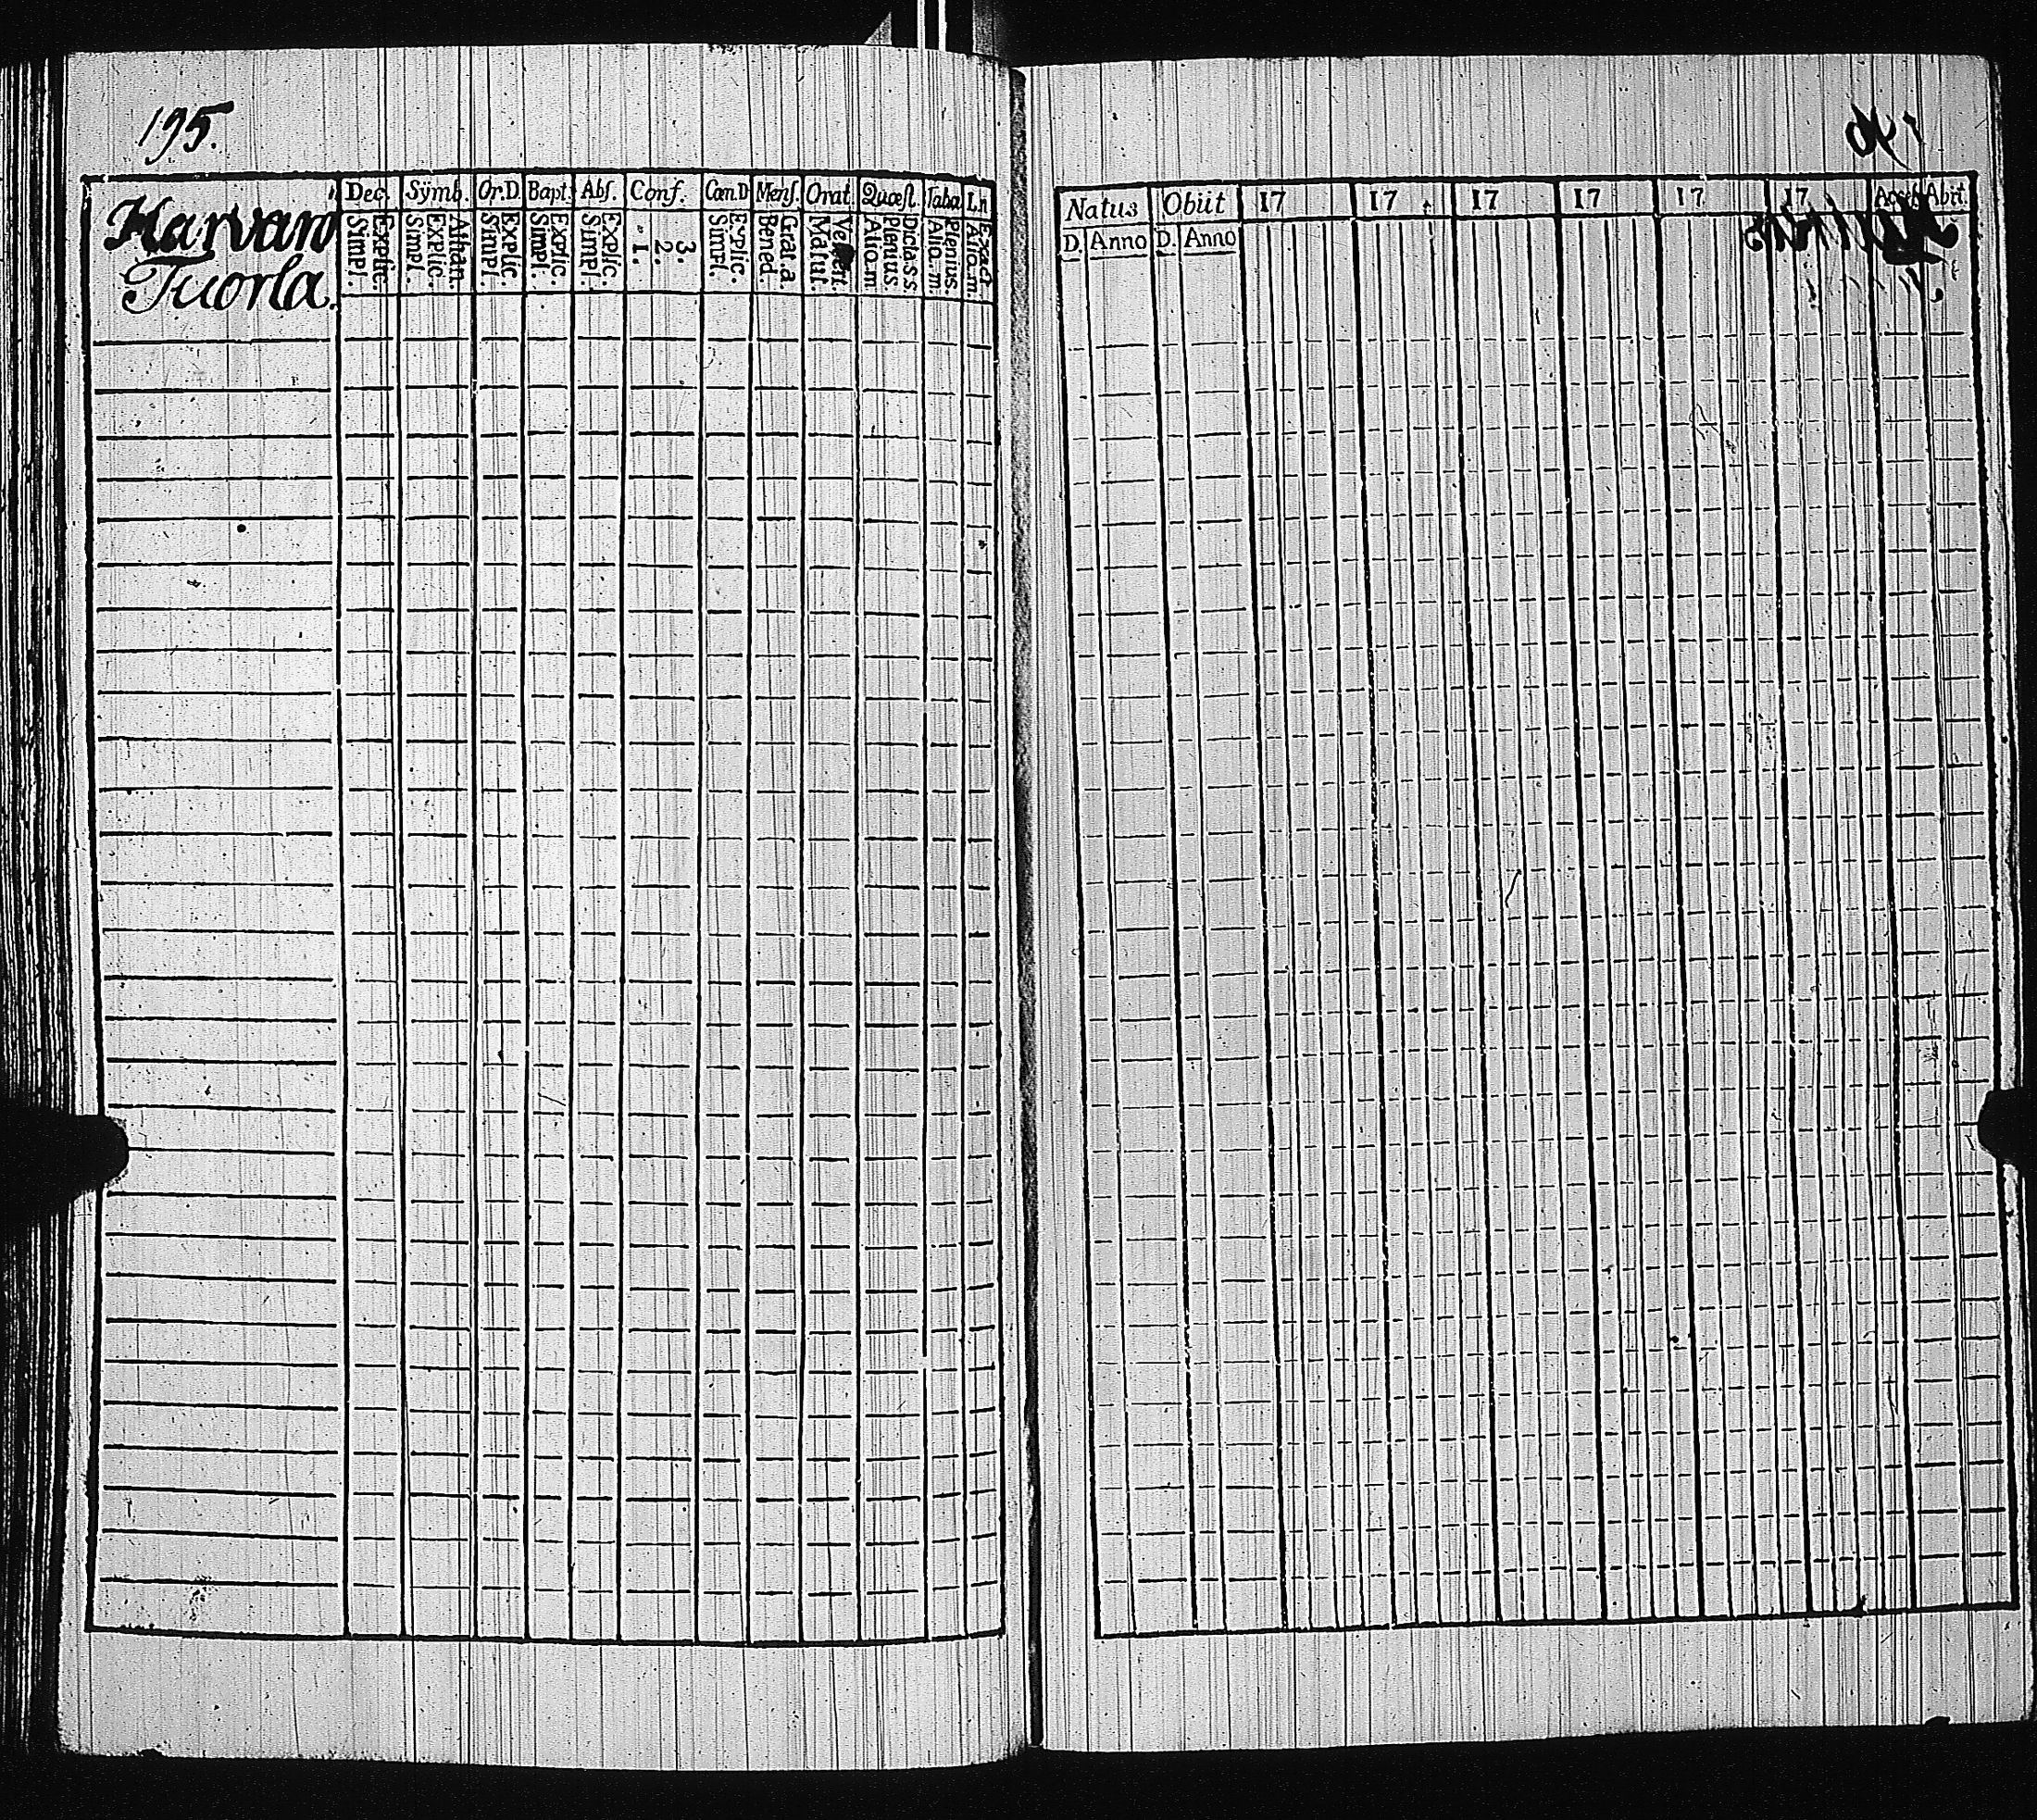 195.
Harvan
Tuorla.
Dec. Sÿmb. Or.D. Bapt: Abſ. Conf. Cœn.D Menſ. Orat. Quœſt. Taba L.n
Simpl. Explic. Simpl. Explic. Athan. Simpl. Explic. Simpl. Explic. Simpl. Explic. 1. 2. 3. Simpl. Explic. Bened. Grat.a. Matut. Alio.m Plenius Dicta.s.s. Alio.m. Plenius. Alio.m. Exact
Natus Obiit 17 17 17 17 17 17 Abit.
D. Anno D. Anno